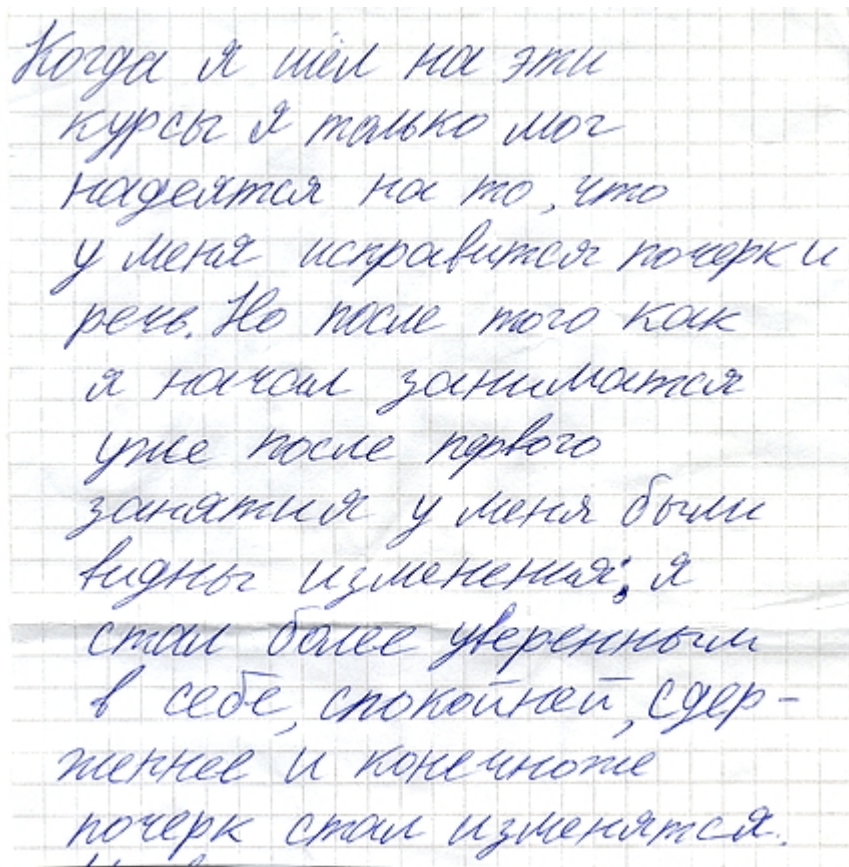 Когда я шёл на эти
курсы я только мог
надеятся на то, что
у меня исправится почерк и
речь. Но после того как
я начал заниматся
уже после первого
занятия у меня были
видны изменения; я
стал более уверенным
в себе, спокойней, сдер-
женнее и конечноже
почерк стал изменятся.